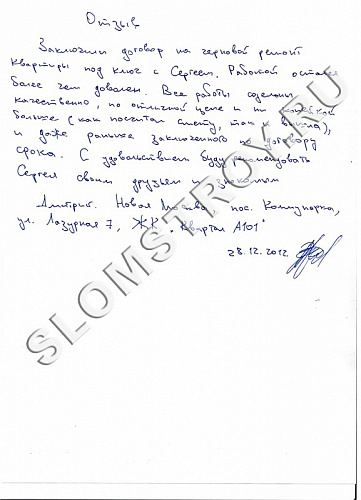 Отзыв
Заключили договор на черновой ремонт
квартиры под ключ с Сергеем. Работой остался
более чем доволен. Все работы сделаны
качественно, по отличной цене и ни копейкой
больше (как посчитал смету, так и вышла),
и даже раньше заключенного по договору
срока. С удовольствием буду рекомендовать
Сергея своим друзьям и знакомым
Дмитрий. Новая Москва пос. Коммунарка,
ул. Лазурная 7, ЖК "Квартал А101"
28.12.2012
SLOMSTROY.RU